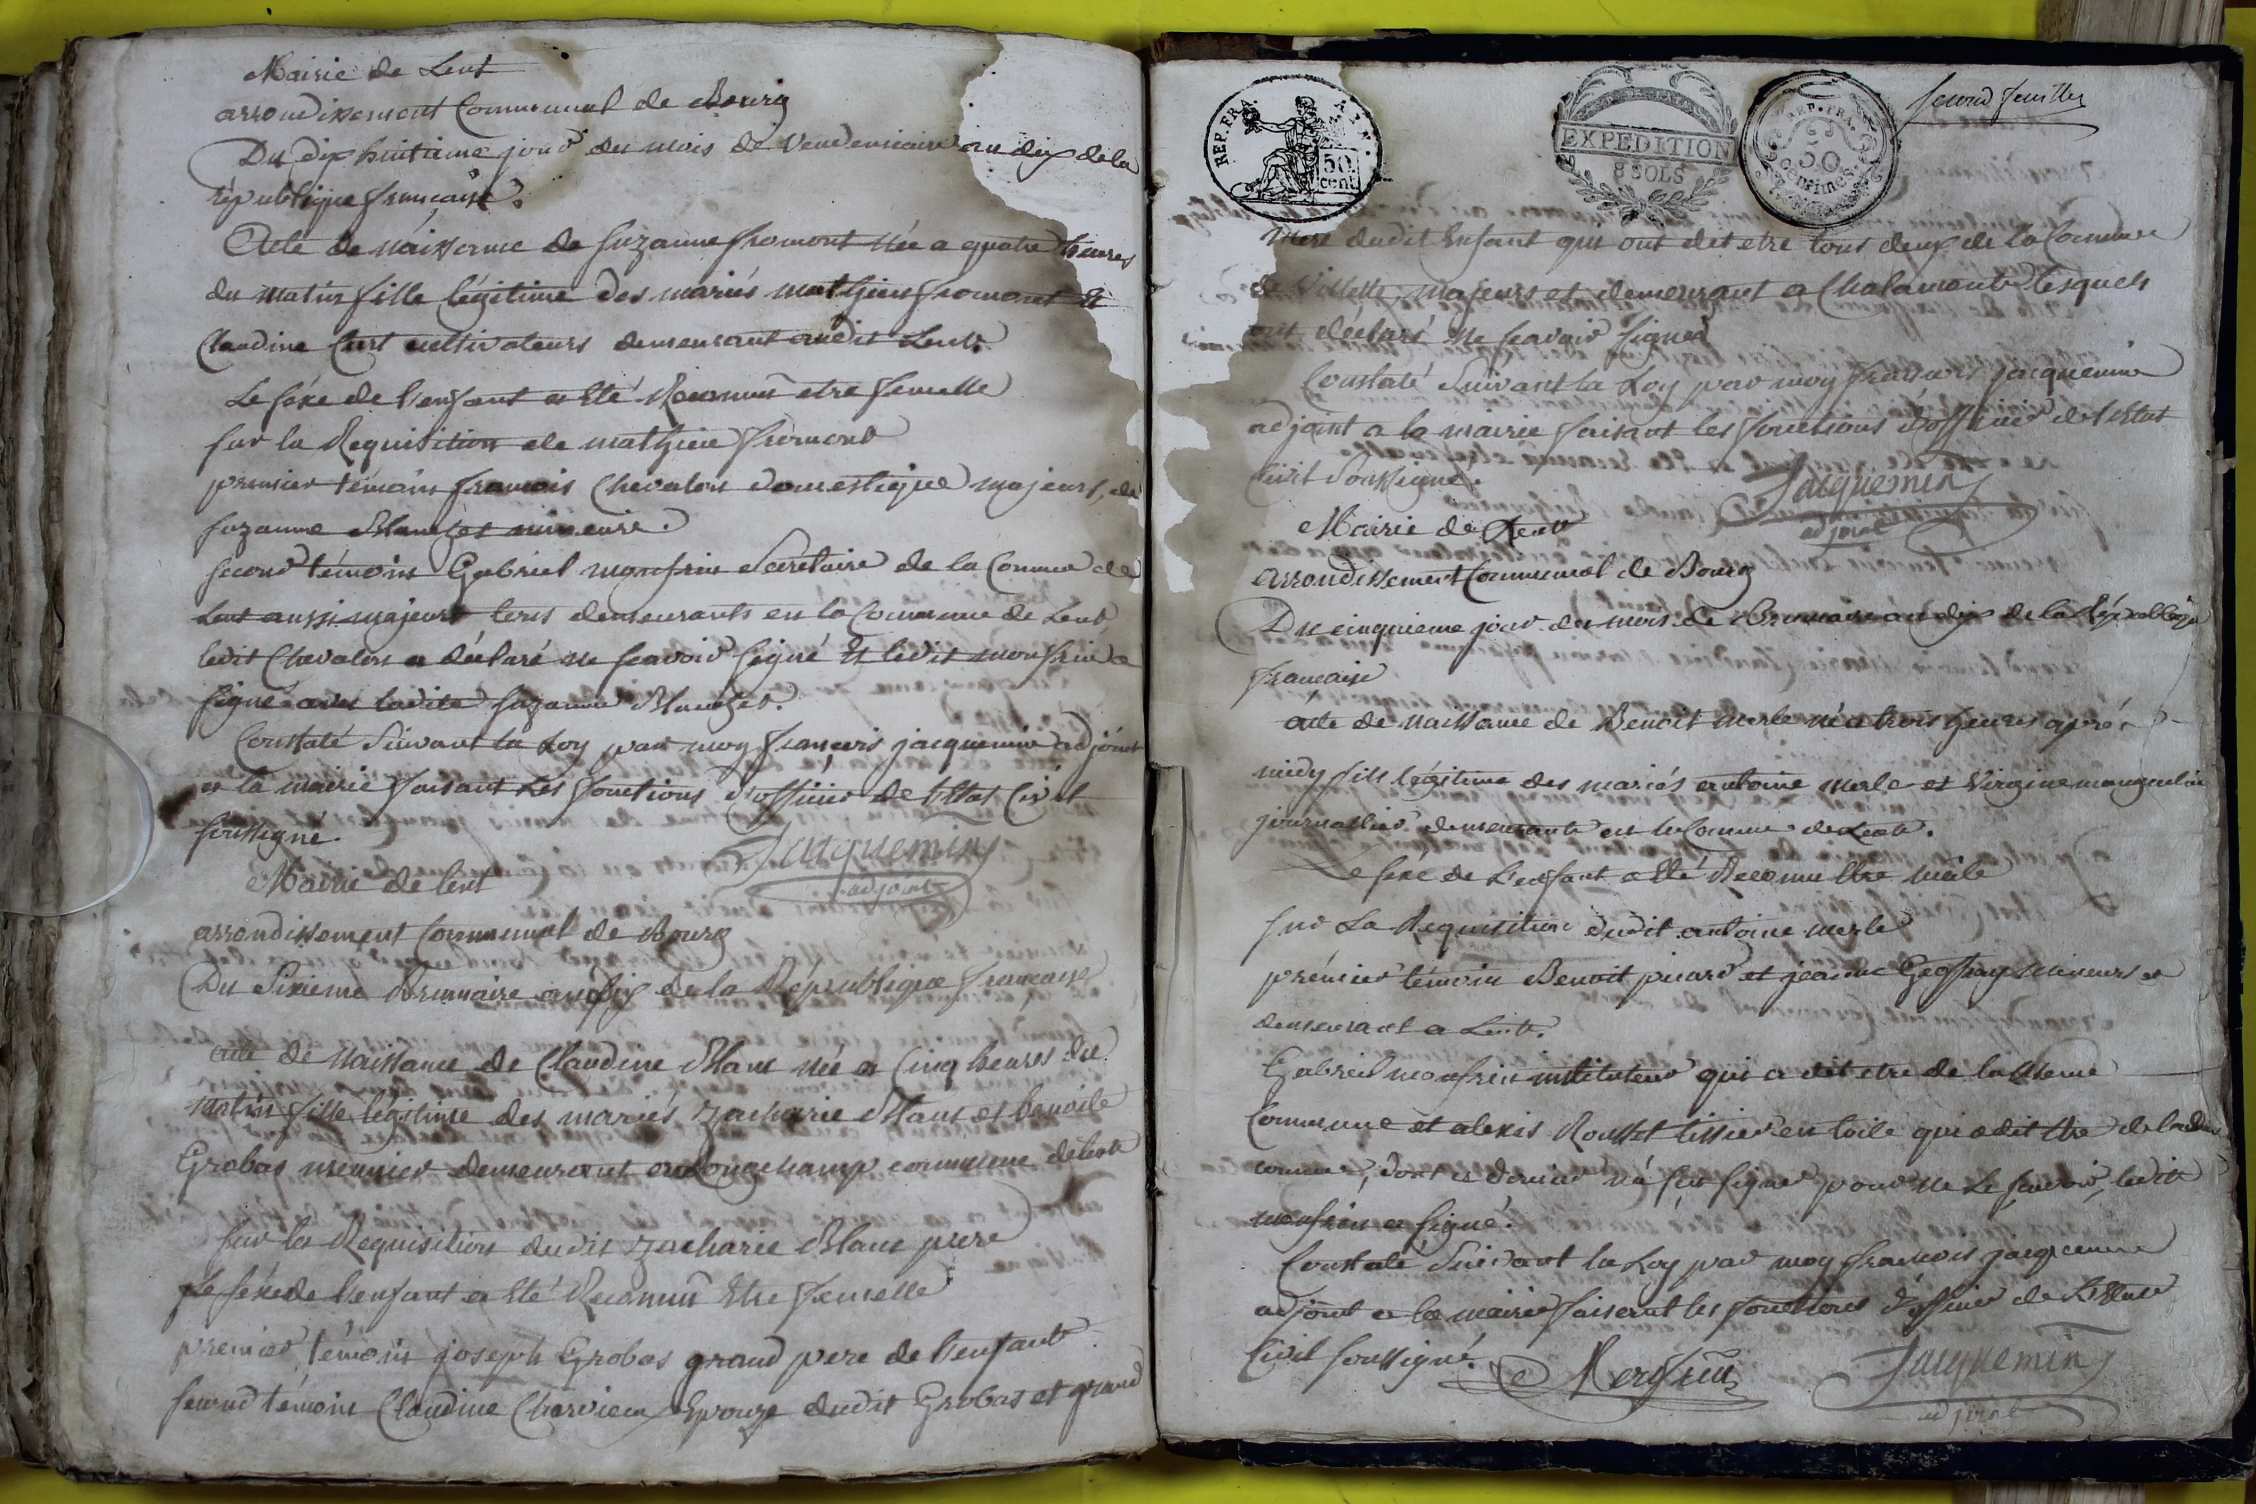 Mairie de Lent
arrondissement Communal de Bourg
Du dix huitieme jour du mois de Vendemiaire an dix de la
république francaise.
Acte de naissance de Suzanne fromont née a quatre heures
du matin fille légitime des mariés mathieu fromont et
Claudine Curt cultivateurs demeurant audit Lent.
Le séxe de l'enfant a été Reconnu etre femelle
sur la Requisition de mathieu fromont
premier témoin francois Chevalon domestique majeurs, de
suzanne Blanchet mineure.
second témoin Gabriel monfrin Secrétaire de la Comune de
Lent aussi majeurs tous demeurants en la Commune de Lent
ledit Chevalon a déclaré ne scavoir signé Et ledit monfrin a
signé avec ladite suzanne Blanchet.
Constaté Suivant la Loy par moy françois jacquemin adjoint
a la mairie faisant les fonctions d'officier de l'Etat Civil
soussigné.
Jacquemin
adjoint
Mairie de lent
arrondissement Communal de Bourg
Du Sixieme Brumaire an dix de la République francaise
acte de Naissance de Claudine Blanc née a Cinq heures du
matin fille légitime des mariés zacharie Blanc et benoite
Grobas meunier demeurant au Longchamp commune de lent
sur la Requisition dudit zacharie Blanc pere
Le séxe de l'enfant a été Reconnu Etre femelle
premier témoin joseph Grobas grand pere de l'enfant
second témoin Claudine Charvieux Epouze dudit Grobas et grand
second feuillet
REP. FRA.
50
cent
EXPEDITION
8 SOLS
REP. FRA.
50
Centimes
mere dudit Enfant qui ont dit etre tous deux de la Commune
de Villette, majeurs et demeurant a Chalamont Lesquels
ont déclaré ne scavoir signer
Constaté Suivant la Loy par moy francois jacquemin
adjoint a la mairie faisant les fonctions d'officier de l'Etat
Civil Soussigné.
Jacquemin
adjoint
Mairie de Lent
arrondissement Communal de Bourg
Du cinquieme jour du mois de Brumaire an dix de la République
francaise
acte de naissance de Benoit merle né a trois heures aprés
midy fils légitime des mariés antoine merle et Virginie
journallier demeurant en la Comune de Lent.
Le séxe de L'enfant a été Reconnu Etre mâle
sur La Requisition dudit antoine merle
prémier témoin Benoit picard et jeanne Geoffray mineurs
demeurant a Lent.
Gabriel monfrin instituteur qui a dit etre de la même
Commune et alexis Rousset tissier en toile qui a dit Etre de ladite
comune, dont ce dernier n'a sçu signer pour ne Le scavoir, ledit
monfrin a signé.
Constaté Suivant la Loy par moy francois jacquemin
adjoint a la mairie faisant les fonctions d'officier de L'Etat
Civil soussigné.
Monfrin
Jacquemin
adjoint